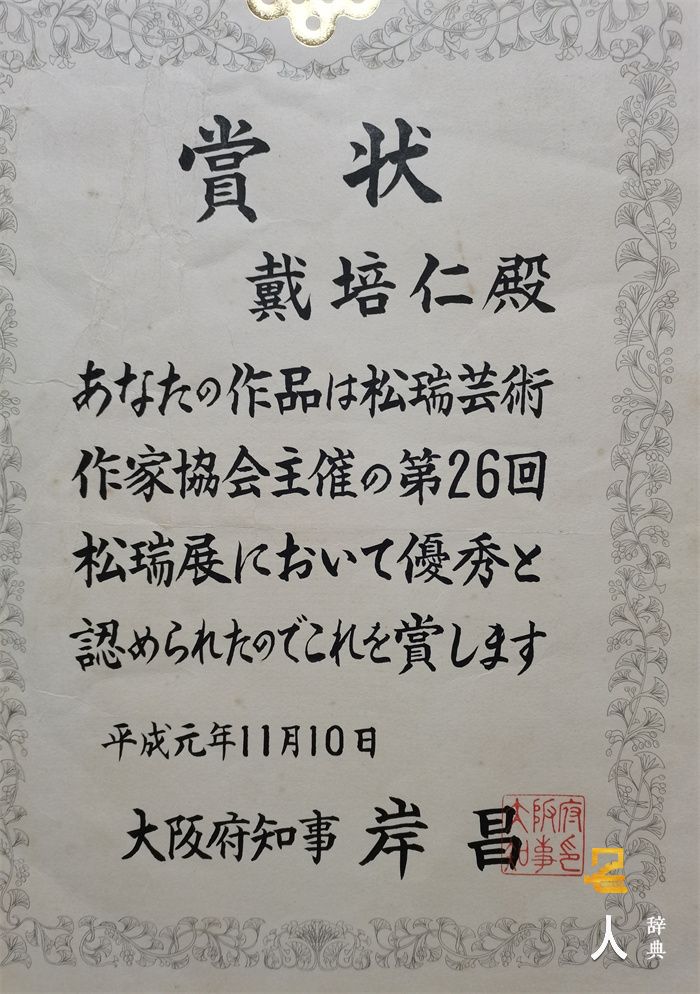 賞状
戴培仁殿
あなたの作品は松瑞芸術
作家協会主催の第26回
松瑞展において優秀と
認められたのでこれを賞します
平成元年11月10日
大阪府知事 岸昌
大阪府
知事印
名人
辞典